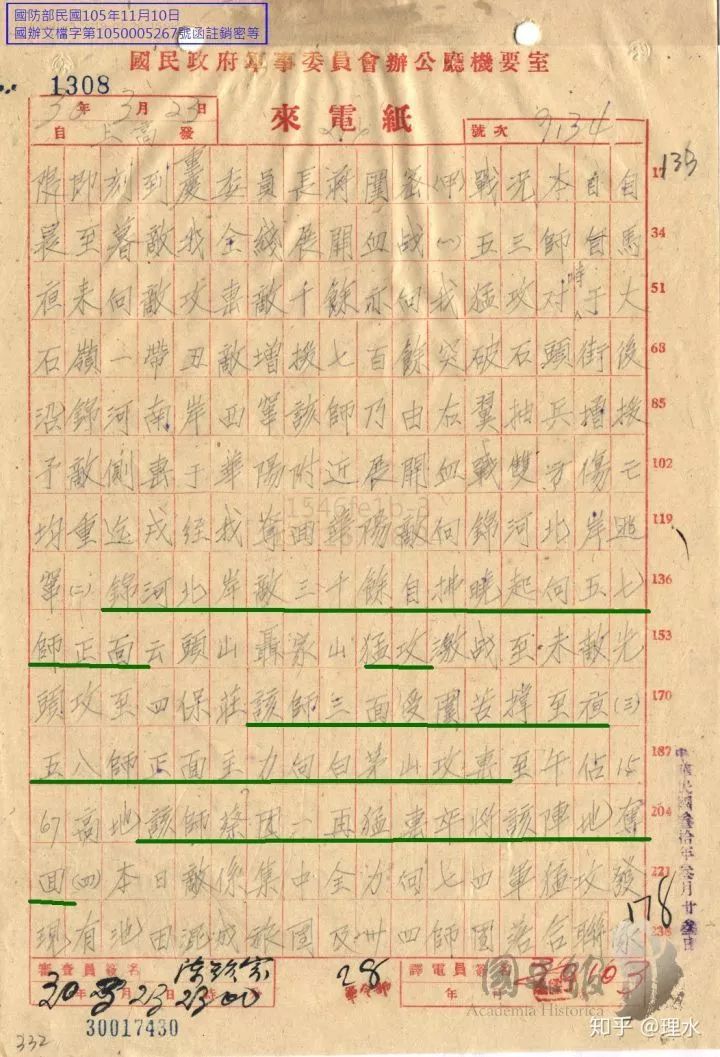 國防部民國105年11月10日
國辦文檔字第1050005267號函註銷密等
國民政府軍事委員會辦公廳機要室
1308
30年3月23日
自上高發
來電紙
號次 9134
135
限即刻到重慶委員長蔣闓密(甲)戰況本日自 17
晨至暮敵我全綫展開血战(一)五三師自馬 34
夜来向敵攻擊敵千餘亦向我猛攻对時于大 51
石嶺一帶丑敵增援七百餘突破石頭街後 68
沿錦河南岸西竄該師乃由左翼抽兵增援 85
予敵側擊于華陽附近展開血戰雙方傷亡 102
均重迄戌经我奪回華陽敵向錦河北岸逃 119
竄(二)錦河北岸敵三千餘自拂曉起向五七 136
師正面云頭山聶家山猛攻激战至未敵光 153
頭攻至四保莊該師三面受圍苦撑至夜(三) 170
五八師正面主力向白茅山攻擊至午佔15 187
67高地該師蔡团一再猛擊午將該陣地奪 204
回(四)本日敵係集中全力向七四軍猛攻發 221
現有池田混成旅团及卅四師团落合聯家 238
中華民國叁拾年叁月廿叁日
178
審查員簽名
30年3月23日23時00
28
譯電員簽名
年
30017430
332
國史館
Academia Historica
1546fe1b_3
知乎 @理水